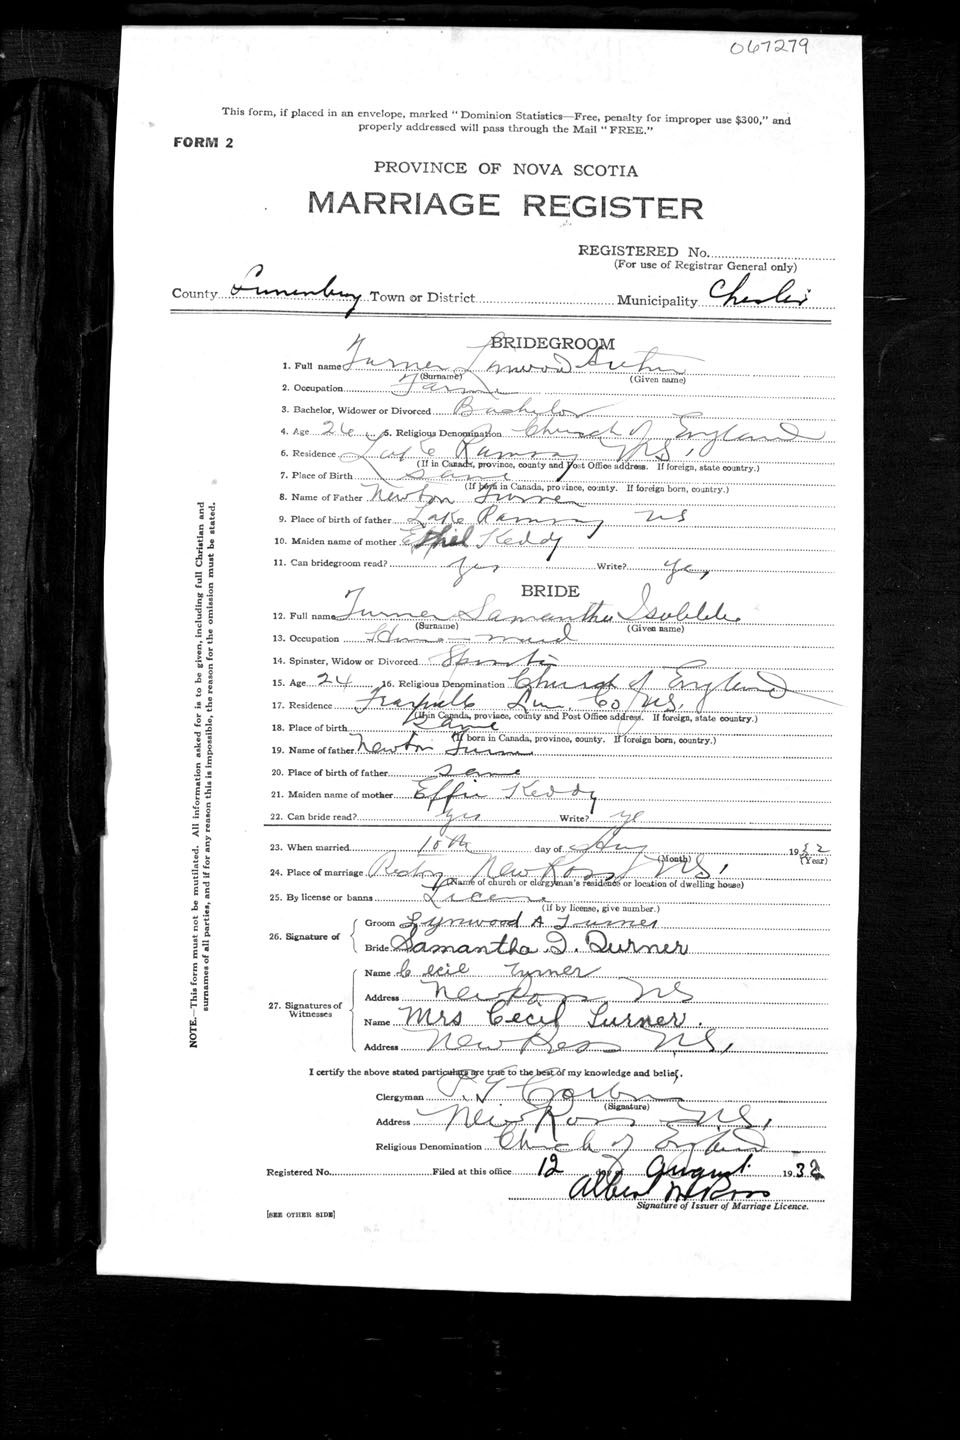 067279
This form, if placed in an envelope, marked "Dominion Statistics—Free, penalty for improper use $300," and
properly addressed will pass through the Mail "FREE."
FORM 2
PROVINCE OF NOVA SCOTIA
MARRIAGE REGISTER
REGISTERED No.
(For use of Registrar General only)
County Lunenburg Town or District Municipality Chester
BRIDEGROOM
1. Full name Turner Lynwood Arthur
(Surname) (Given name)
2. Occupation Farmer
3. Bachelor, Widower or Divorced Bachelor
4. Age 26 5. Religious Denomination Church of England
6. Residence Lake Ramsay N.S.
(If in Canada, province, county and Post Office address. If foreign, state country.)
7. Place of Birth Same
(If born in Canada, province, county. If foreign born, country.)
8. Name of Father Newton Turner
9. Place of birth of father Lake Ramsay NS
10. Maiden name of mother Ethel Keddy
11. Can bridegroom read? Yes Write? Yes
BRIDE
12. Full name Turner Samantha Isabelle
(Surname) (Given name)
13. Occupation Home-maid
14. Spinster, Widow or Divorced Spinster
15. Age 24 16. Religious Denomination Church of England
17. Residence Lun. Co NS.
(If in Canada, province, county and Post Office address. If foreign, state country.)
18. Place of birth Same
(If born in Canada, province, county. If foreign born, country.)
19. Name of father Newton Turner
20. Place of birth of father Same
21. Maiden name of mother Effie Keddy
22. Can bride read? Yes Write? Ye
23. When married 10th day of Aug 1932
(Month) (Year)
24. Place of marriage Rectory New Ross NS.
(Name of church or clergyman's residence or location of dwelling house)
25. By license or banns License
(If by license, give number.)
26. Signature of
Groom Lynwood A Turner
Bride Samantha I. Turner
27. Signatures of Witnesses
Name Cecil Turner
Address New Ross NS
Name Mrs Cecil Turner.
Address New Ross N.S.
I certify the above stated particulars are true to the best of my knowledge and belief.
Clergyman
(Signature)
Address New Ross N.S.
Religious Denomination Church of England
Registered No. Filed at this office 12 day of August 1932
Albert Ross
Signature of Issuer of Marriage Licence.
[SEE OTHER SIDE]
NOTE.—This form must not be mutilated. All information asked for is to be given, including full Christian and
surnames of all parties, and if for any reason this is impossible, the reason for the omission must be stated.